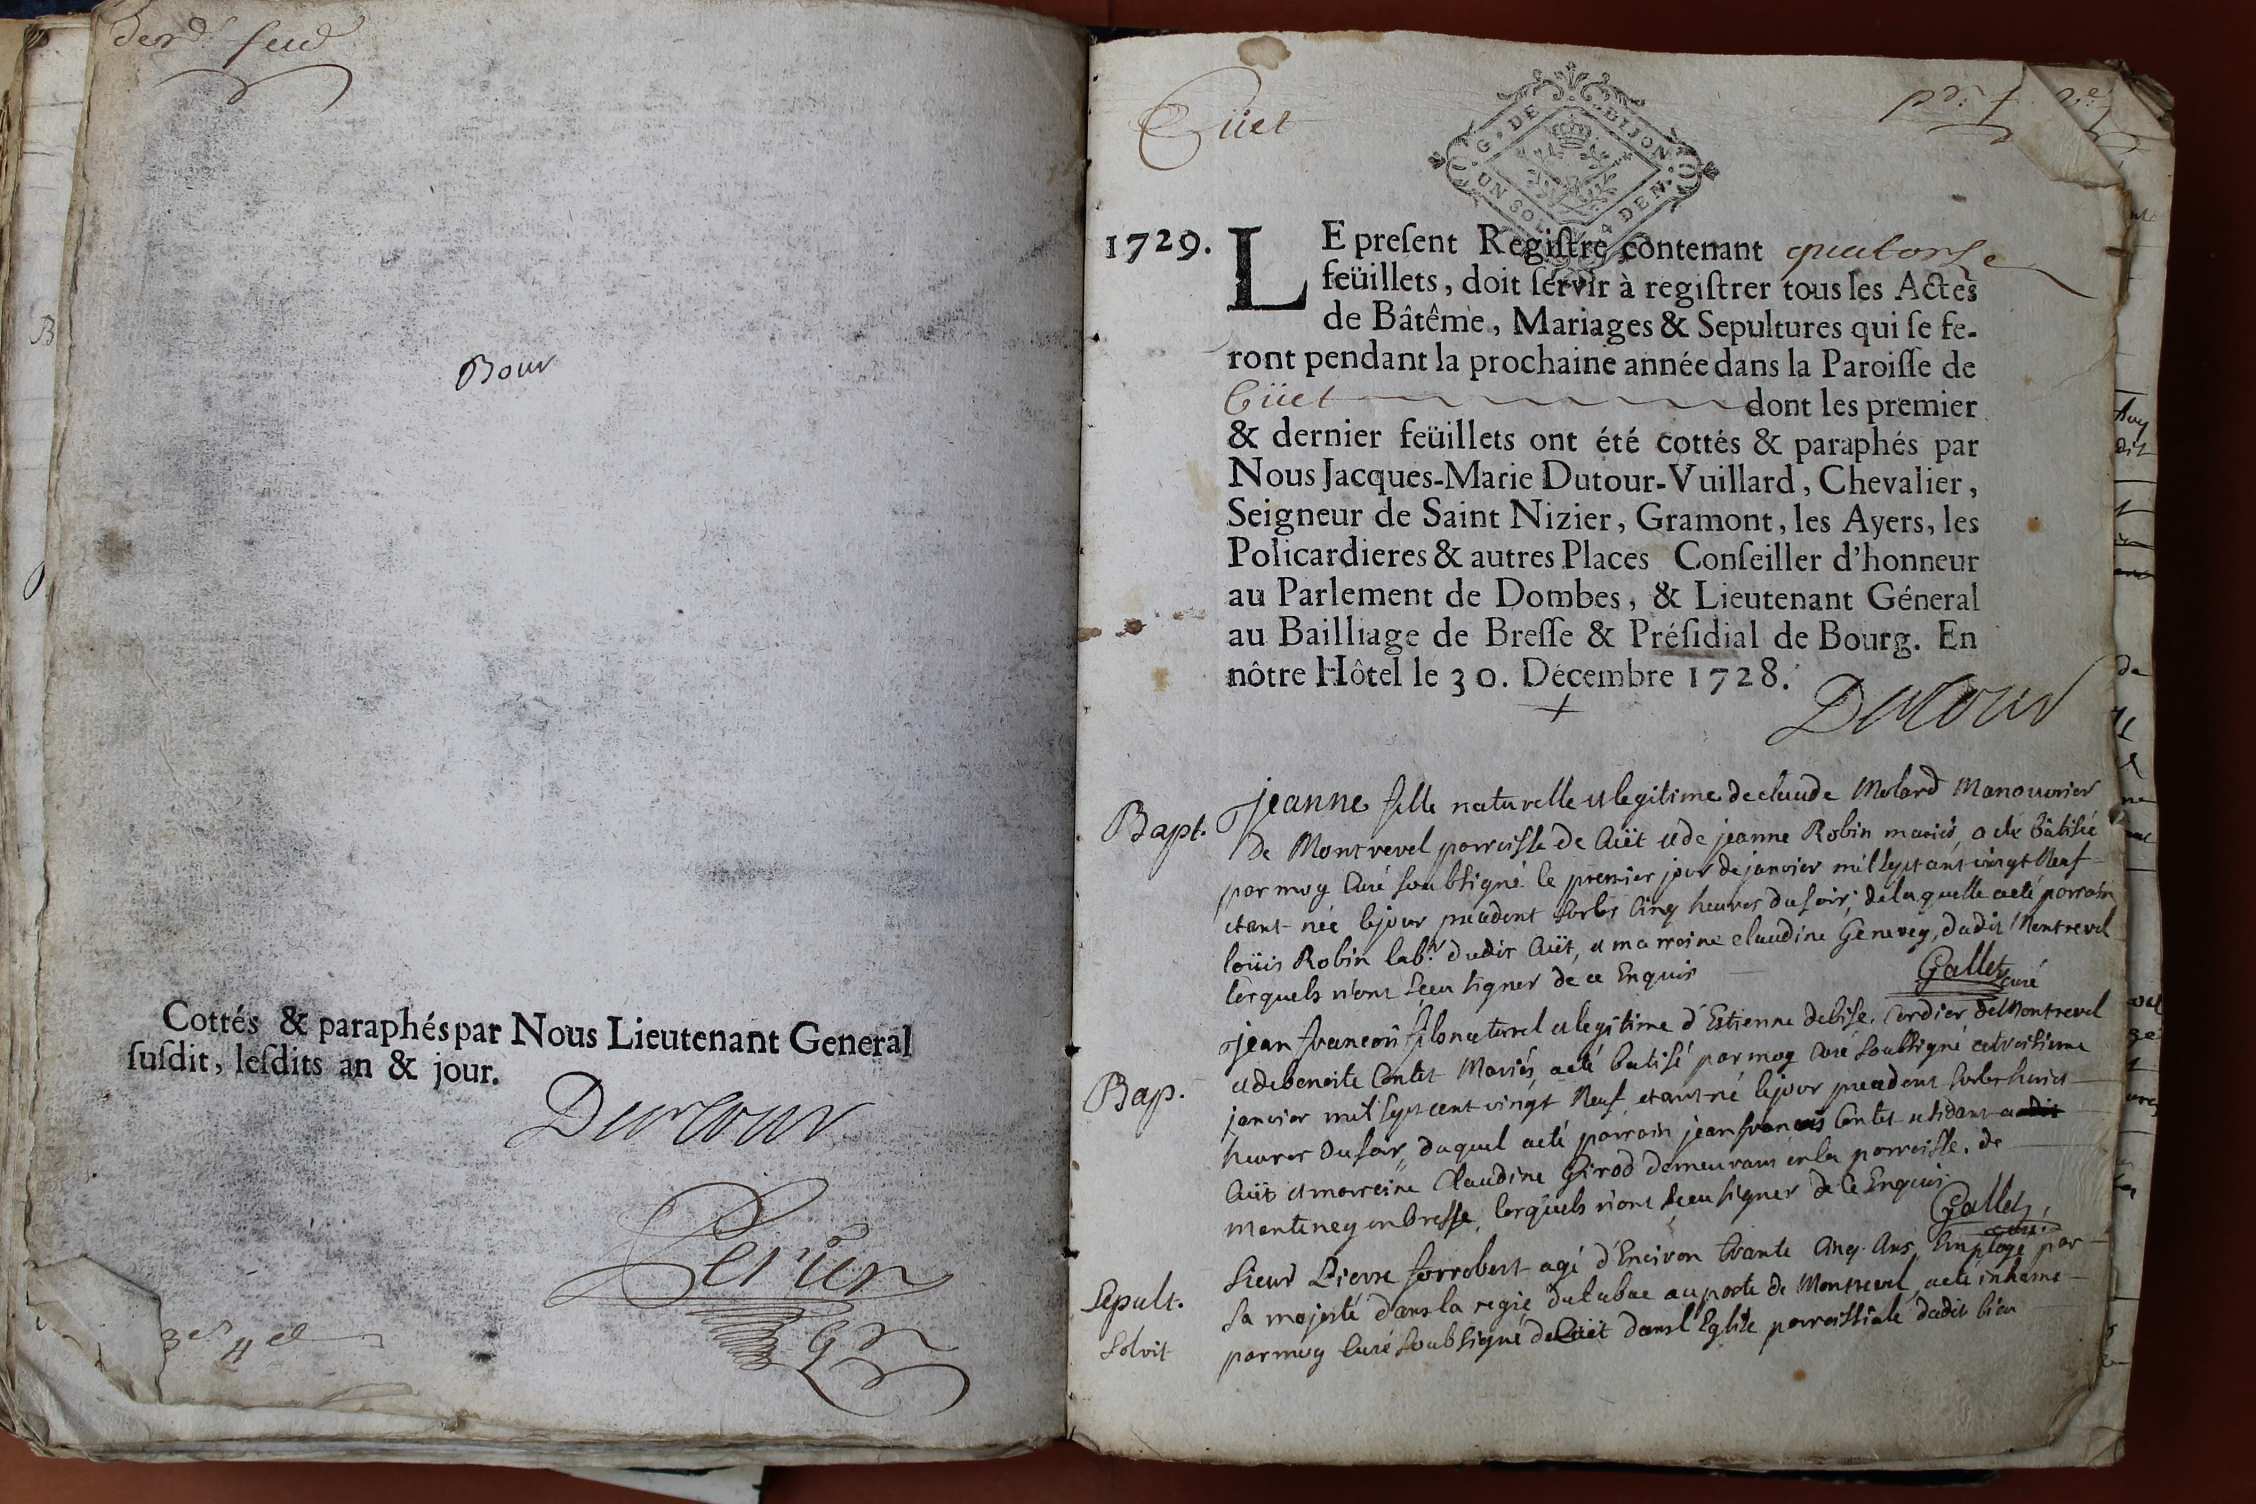 Bour
Cottés & paraphés par Nous Lieutenant General
susdit, lesdits an & jour.
Dutour
Perier
Cüet
G. DE DIJON
UN SOL DEN.
1729. LE present Registre contenant quatorse
feüillets, doit servir à registrer tous les Actes
de Bâtême, Mariages & Sepultures qui se fe-
ront pendant la prochaine année dans la Paroisse de
Cüet dont les premier
& dernier feüillets ont été cottés & paraphés par
Nous Jacques-Marie Dutour-Vuillard, Chevalier,
Seigneur de Saint Nizier, Gramont, les Ayers, les
Policardieres & autres Places Conseiller d'honneur
au Parlement de Dombes, & Lieutenant Géneral
au Bailliage de Bresse & Présidial de Bourg. En
nôtre Hôtel le 30. Décembre 1728.
Dutour
Bapt. Jeanne fille naturelle et legitime de claude Molard Manouvrier
de Montrevel parroisse de Cüet et de jeanne Robin mariés a ete bâtisée
par moy Curé soubsigné le premier jour de janvier mil sept cent vingt Neuf
etant née le jour precedent sur les Cinq heures du soir, de laquelle a eté parrain
loüis Robin lab.r dudit Cüet, et marraine claudine Genevey, dudit Montrevel
lesquels n'ont sceu signer de ce Enquis
Gallet curé
Bap. Jean francois fils naturel et legitime d'Estienne debise Cordier de Montrevel
et de benoite Contet Mariés, a eté batisé par moy Curé soubsigné
janvier mil sept cent vingt Neuf etant né le jour precedent sur les huict
heures du soir, duquel a eté parrain jean francois Contet
Cüet et marreine Claudine Girod demeurant en la parroisse de
monteney en bresse, lesquels n'ont sceu signer de ce Enquis
Gallet
curé
Sepult. Sieur Pierre forrobert agé d'Environ trante Cinq Ans, Employé par
Solvit sa majesté dans la regie du tabac au poste de Montrevel, a eté inhumé
par moy Curé soubsigné de Cüet dans l'Eglise parroissiale dudit lieu